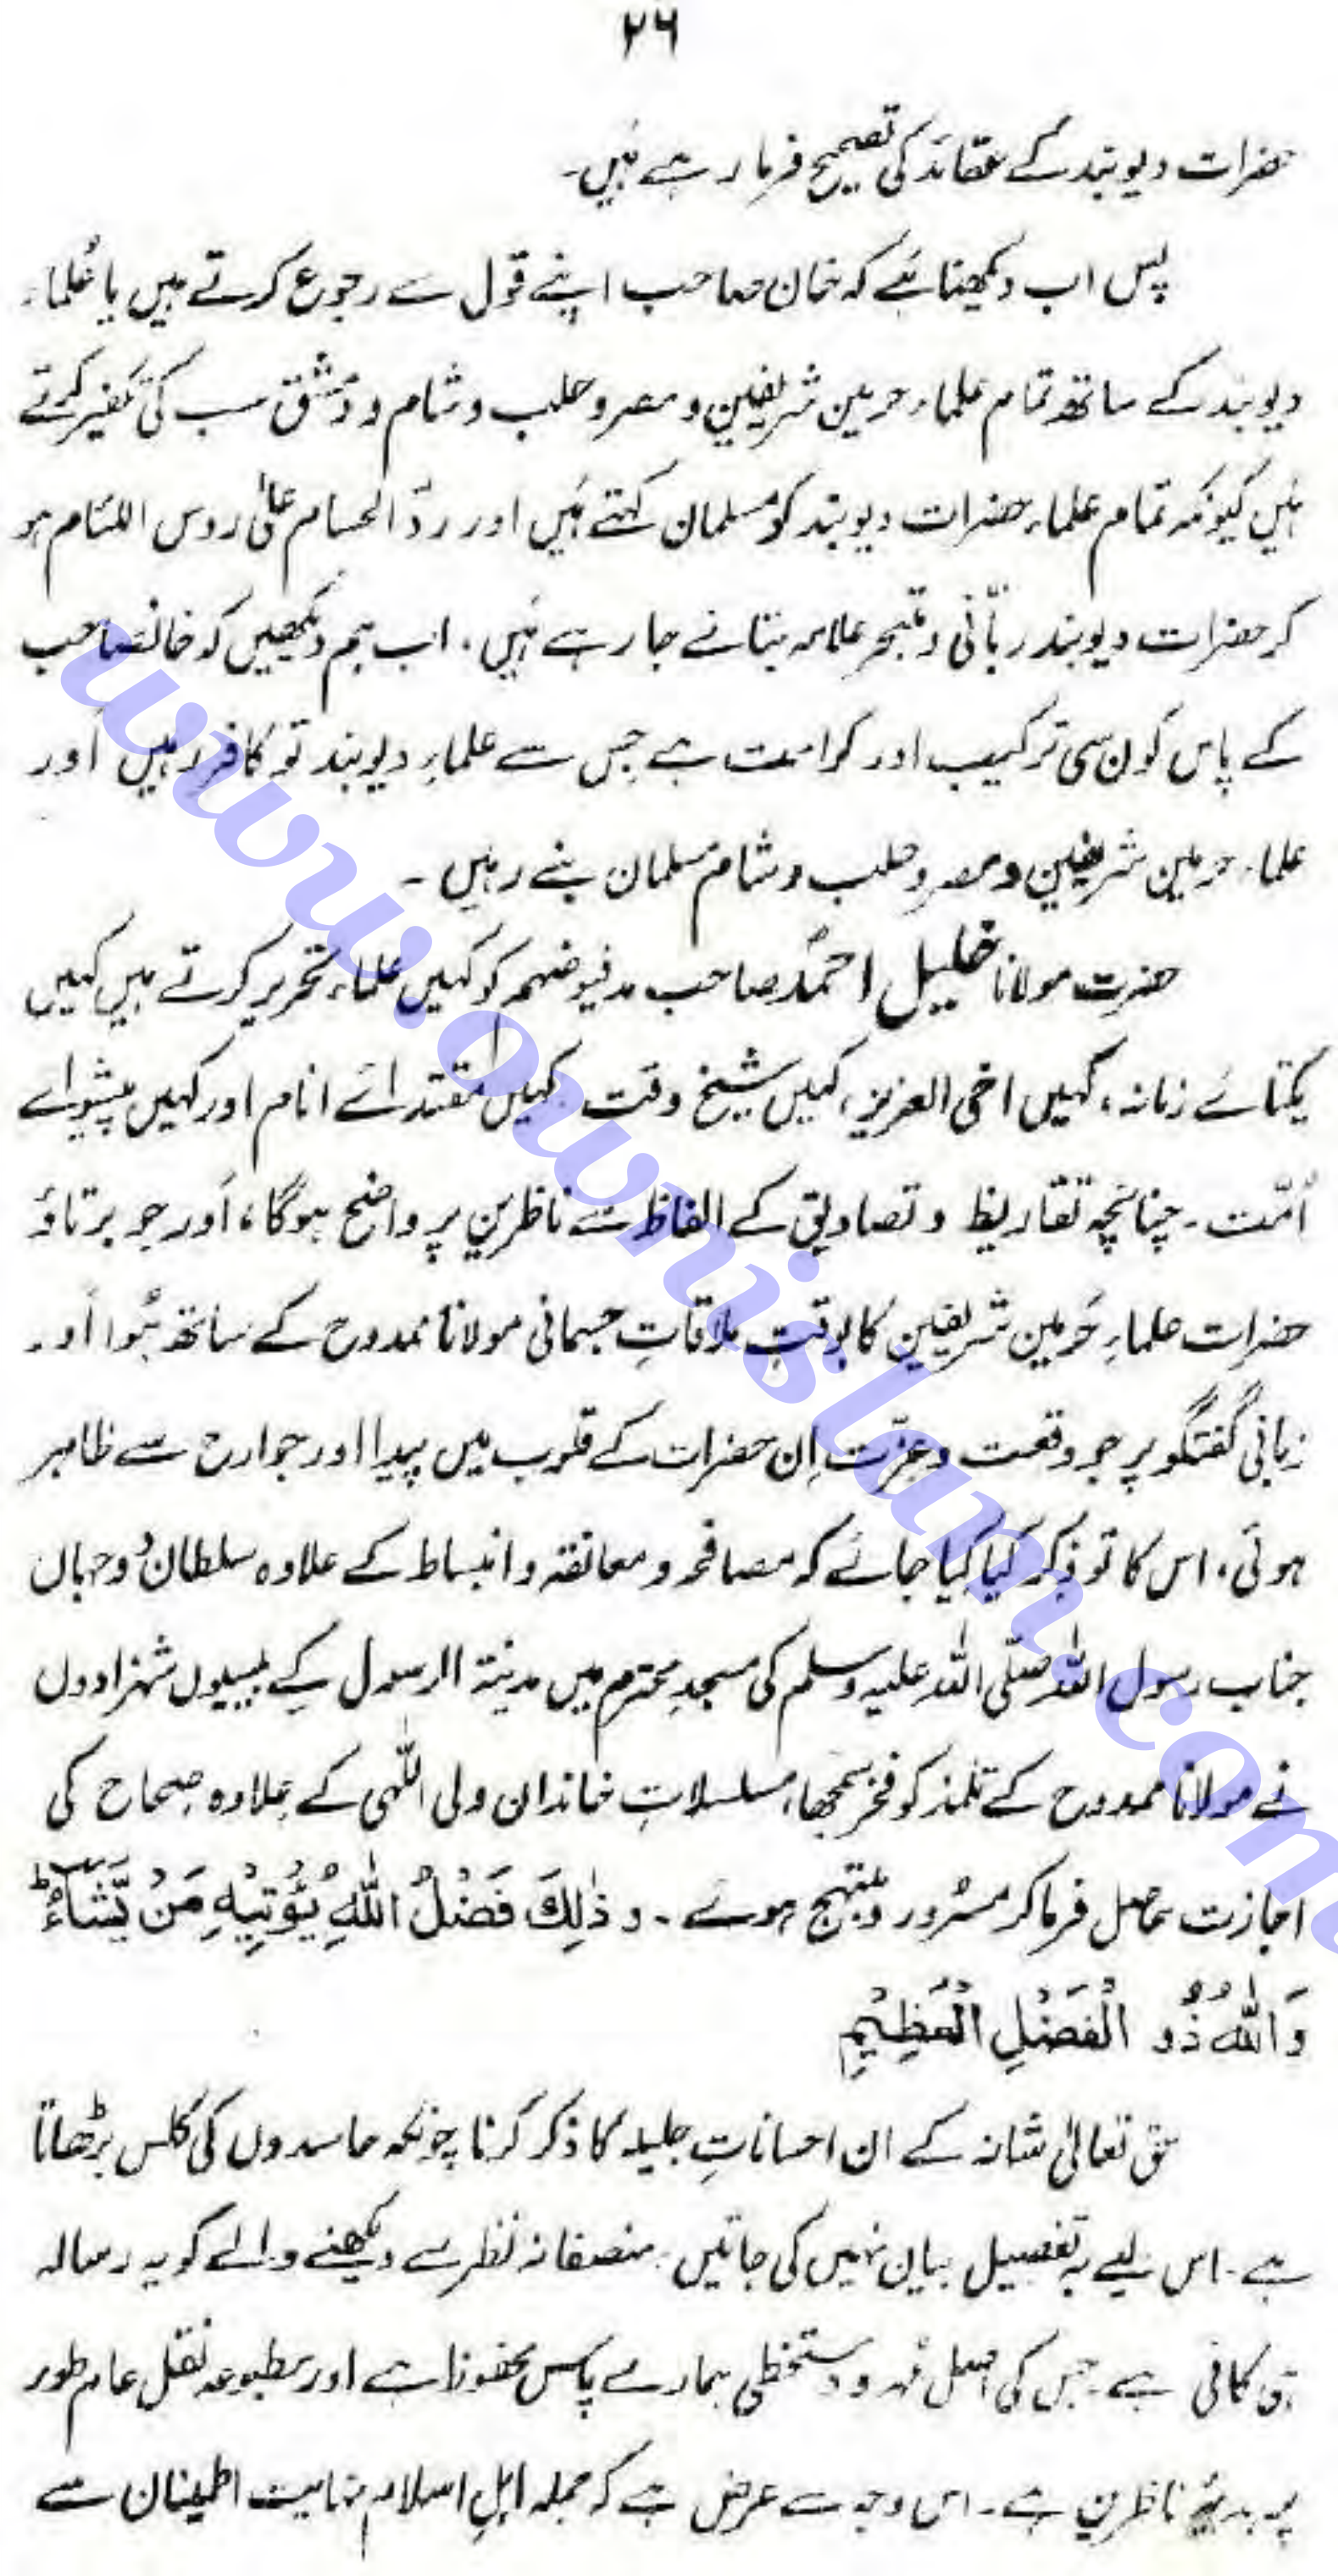 ۲۶
حضرات دیوبند کے عقائد کی تصحیح فرما رہے ہیں۔
پس اب دیکھنا ہے کہ خان صاحب اپنے قول سے رجوع کرتے ہیں یا علماء
دیوبند کے ساتھ تمام علماء حرمین شریفین و مصر و حلب و شام و دمشق سب کی تکفیر کرتے
ہیں کیونکہ تمام علماء حضرات دیوبند کو مسلمان کہتے ہیں اور ردّ الحسام علیٰ روس اللئام ہو
کر حضرات دیوبند ربّانی و متبحر علامہ بتائے جا رہے ہیں، اب ہم دیکھیں کہ خانصاحب
کے پاس کون سی ترکیب اور کرامت ہے جس سے علماءِ دیوبند تو کافر رہیں اور
علماء حرمین شریفین و مصر و حلب و شام مسلمان بنے رہیں ۔
حضرت مولانا خلیل احمد صاحب مد فیوضہم کو کہیں علماء تحریر کرتے ہیں کہیں
یکتائے زمانہ، کہیں اخی العزیز، کہیں شیخ وقت، کہیں مقتدائے انام اور کہیں پیشوائے
اُمّت۔ چنانچہ تقاریظ و تصادیق کے الفاظ سے ناظرین پر واضح ہوگا، اور جو برتاؤ
حضرات علماءِ حرمین شریفین کا بوقتِ ملاقاتِ جسمانی مولانا ممدوح کے ساتھ ہُوا اور
زبانی گفتگو پر جو وقعت و عزّت اِن حضرات کے قلوب میں پیدا اور جوارح سے ظاہر
ہوئی، اس کا تو ذکر کیا کیا جائے کہ مصافحہ و معانقہ و انبساط کے علاوہ سلطان دو جہاں
جناب رسول اللہ صلّی اللہ علیہ وسلم کی مسجدِ محترم میں مدینۃ الرسول کے بیسیوں شہزادوں
نے مولانا ممدوح کے تلمذ کو فخر سمجھا، مسلسلاتِ خاندان ولی اللّٰہی کے علاوہ صحاح کی
اجازت حاصل فرما کر مسرور و مبتہج ہوئے ۔ و ذٰلِكَ فَضْلُ اللّٰهِ يُؤْتِيْهِ مَنْ يَّشَآءُ ط
وَاللّٰهُ ذُو الْفَضْلِ الْعَظِيْمِ
حق تعالیٰ شانہ کے ان احساناتِ جلیلہ کا ذکر کرنا چونکہ حاسدوں کی کلس بڑھاتا
ہے ۔ اس لیے بہ تفصیل بیان نہیں کی جاتیں۔ منصفانہ نظر سے دیکھنے والے کو یہ رسالہ
ہی کافی ہے جس کی اصل مُہر و دستخطی ہمارے پاس محفوظ ہے اور مطبوعہ نقل عام طور
پر ہدیۂ ناظرین ہے ۔ اس وجہ سے عرض ہے کہ جملہ اہلِ اسلام نہایت اطمینان سے
www.ownislam.com